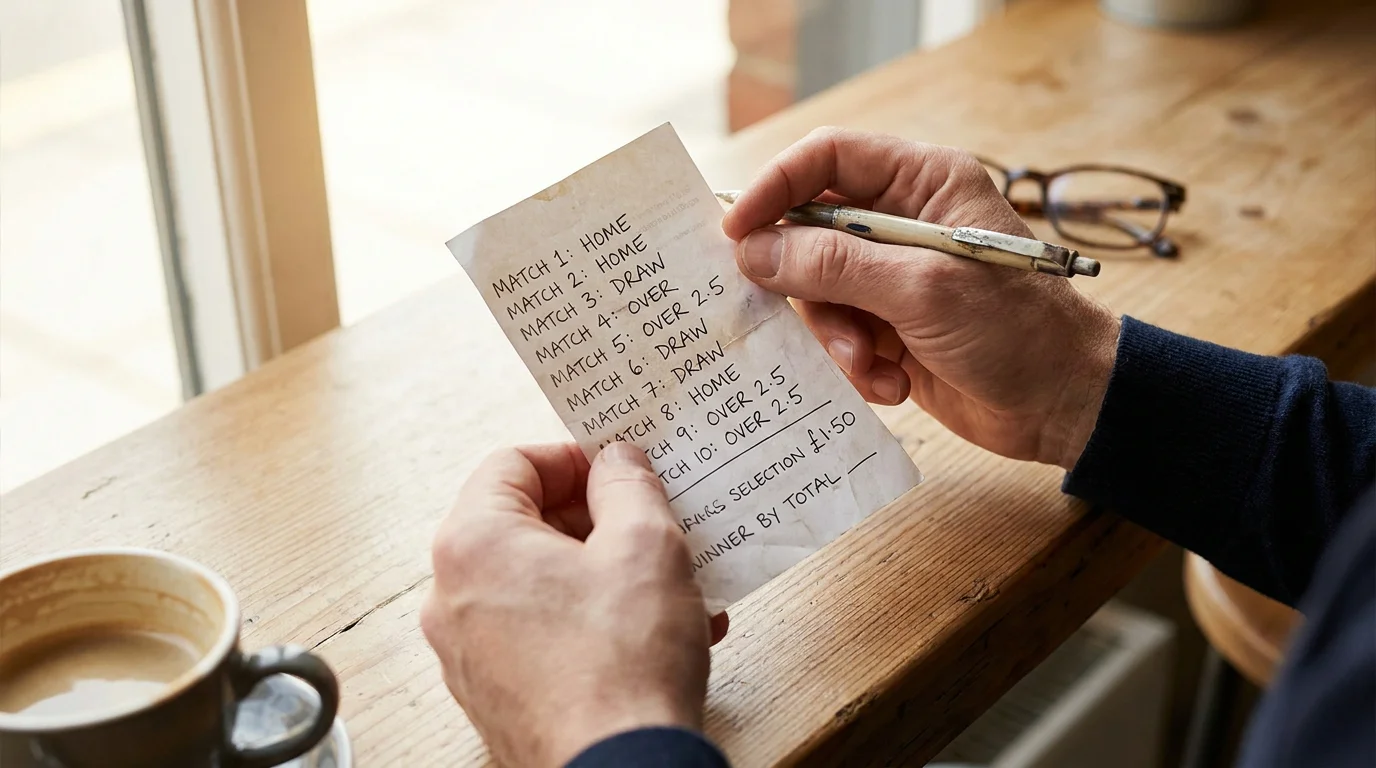 MATCH 1: HOME
MATCH 2: HOME
MATCH 3: DRAW
MATCH 4: OVER
MATCH 5: OVER 2.5
MATCH 6: DRAW
MATCH 7: DRAW
MATCH 8: HOME
TCH 9: OVER 2.5
TCH 10: OVER 2.5
SELECTION £1.50
WINNER BY TOTAL —